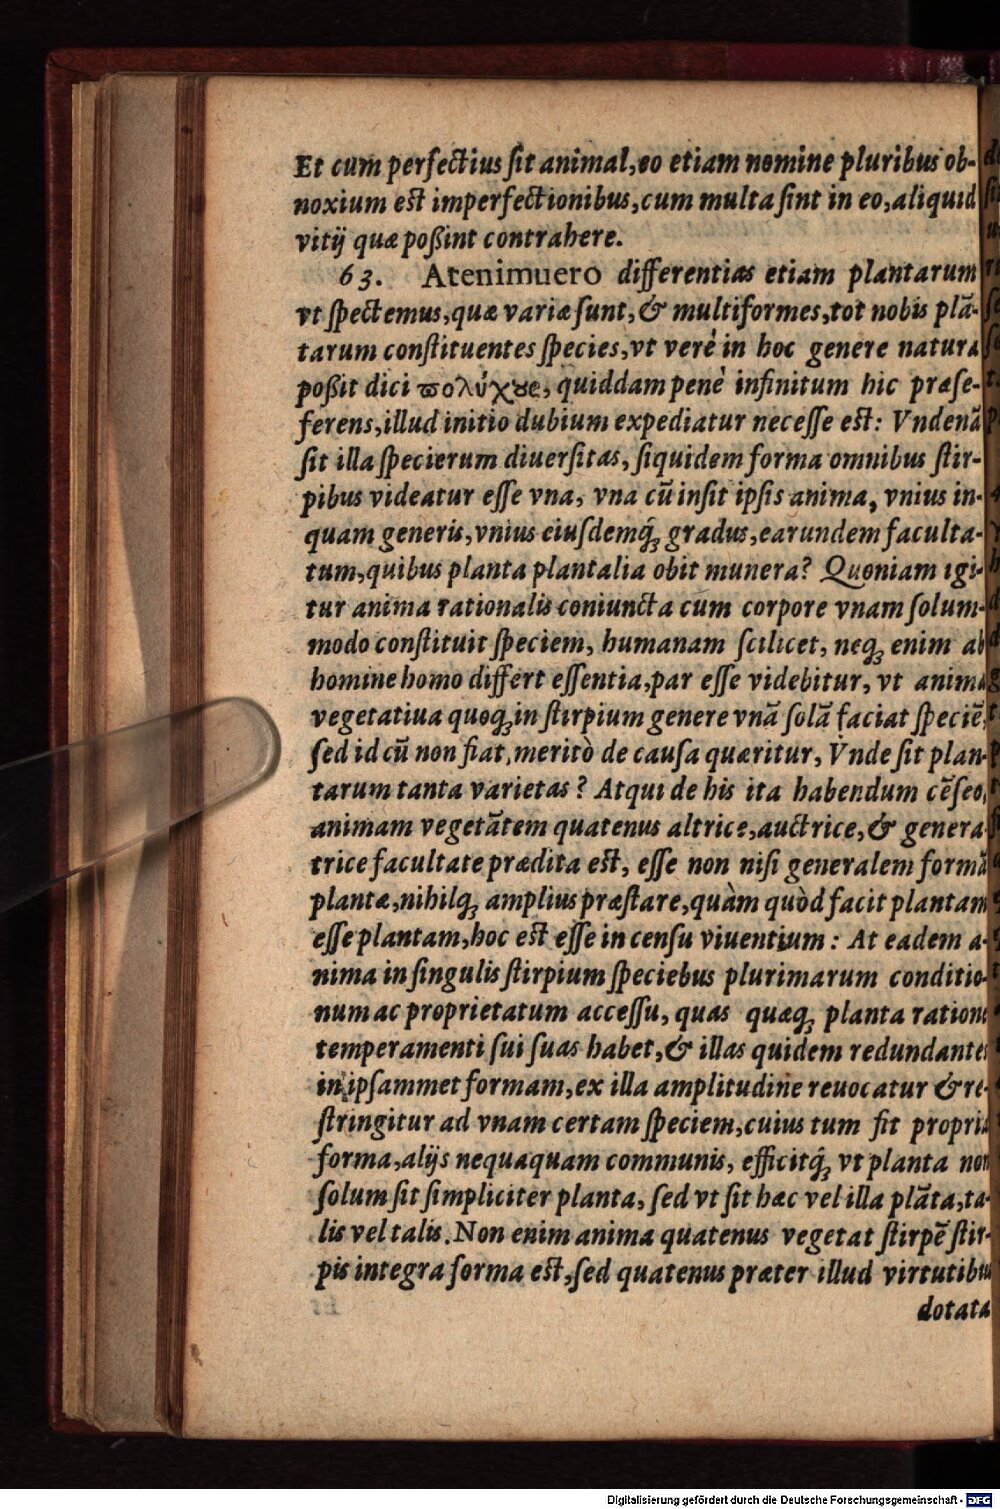 Et cum perfectius ſit animal, eo etiam nomine pluribus ob-
noxium est imperfectionibus, cum multa ſint in eo, aliquid
vitij quæ poßint contrahere.
63. Atenimuero differentias etiam plantarum
vt ſpectemus, quæ variæ ſunt, & multiformes, tot nobis plā-
tarum conſtituentes ſpecies, vt verè in hoc genere natura
poßit dici ϖολύχȣς, quiddam penè infinitum hic præſe-
ferens, illud initio dubium expediatur neceſſe est: Vndenā
ſit illa ſpecierum diuerſitas, ſiquidem forma omnibus ſtir-
pibus videatur eſſe vna, vna cū inſit ipſis anima, vnius in-
quam generis, vnius eiuſdemq́ꝫ gradus, earundem faculta-
tum, quibus planta plantalia obit munera? Quoniam igi-
tur anima rationalis coniuncta cum corpore vnam ſolum-
modo conſtituit ſpeciem, humanam ſcilicet, neqꝫ enim ab
homine homo differt eſſentia, par eſſe videbitur, vt anima
vegetatiua quoqꝫ in ſtirpium genere vnā ſolā faciat ſpeciē,
ſed id cū non fiat, meritò de cauſa quæritur, Vnde ſit plan-
tarum tanta varietas? Atqui de his ita habendum cēſeo,
animam vegetātem quatenus altrice, auctrice, & genera
trice facultate prædita est, eſſe non niſi generalem formā
plantæ, nihilqꝫ amplius præſtare, quàm quòd facit plantam
eſſe plantam, hoc est eſſe in cenſu viuentium: At eadem a-
nima in ſingulis ſtirpium ſpeciebus plurimarum conditio-
num ac proprietatum acceſſu, quas quæqꝫ planta ratione
temperamenti ſui ſuas habet, & illas quidem redundantes
in ipſammet formam, ex illa amplitudine reuocatur & re-
ſtringitur ad vnam certam ſpeciem, cuius tum fit propria
forma, alijs nequaquam communis, efficitq́ꝫ vt planta non
ſolum ſit ſimpliciter planta, ſed vt ſit hæc vel illa plāta, ta-
lis vel talis. Non enim anima quatenus vegetat ſtirpē ſtir-
pis integra forma est, ſed quatenus præter illud virtutibus
dotata
Digitalisierung gefördert durch die Deutsche Forschungsgemeinschaft - DFG